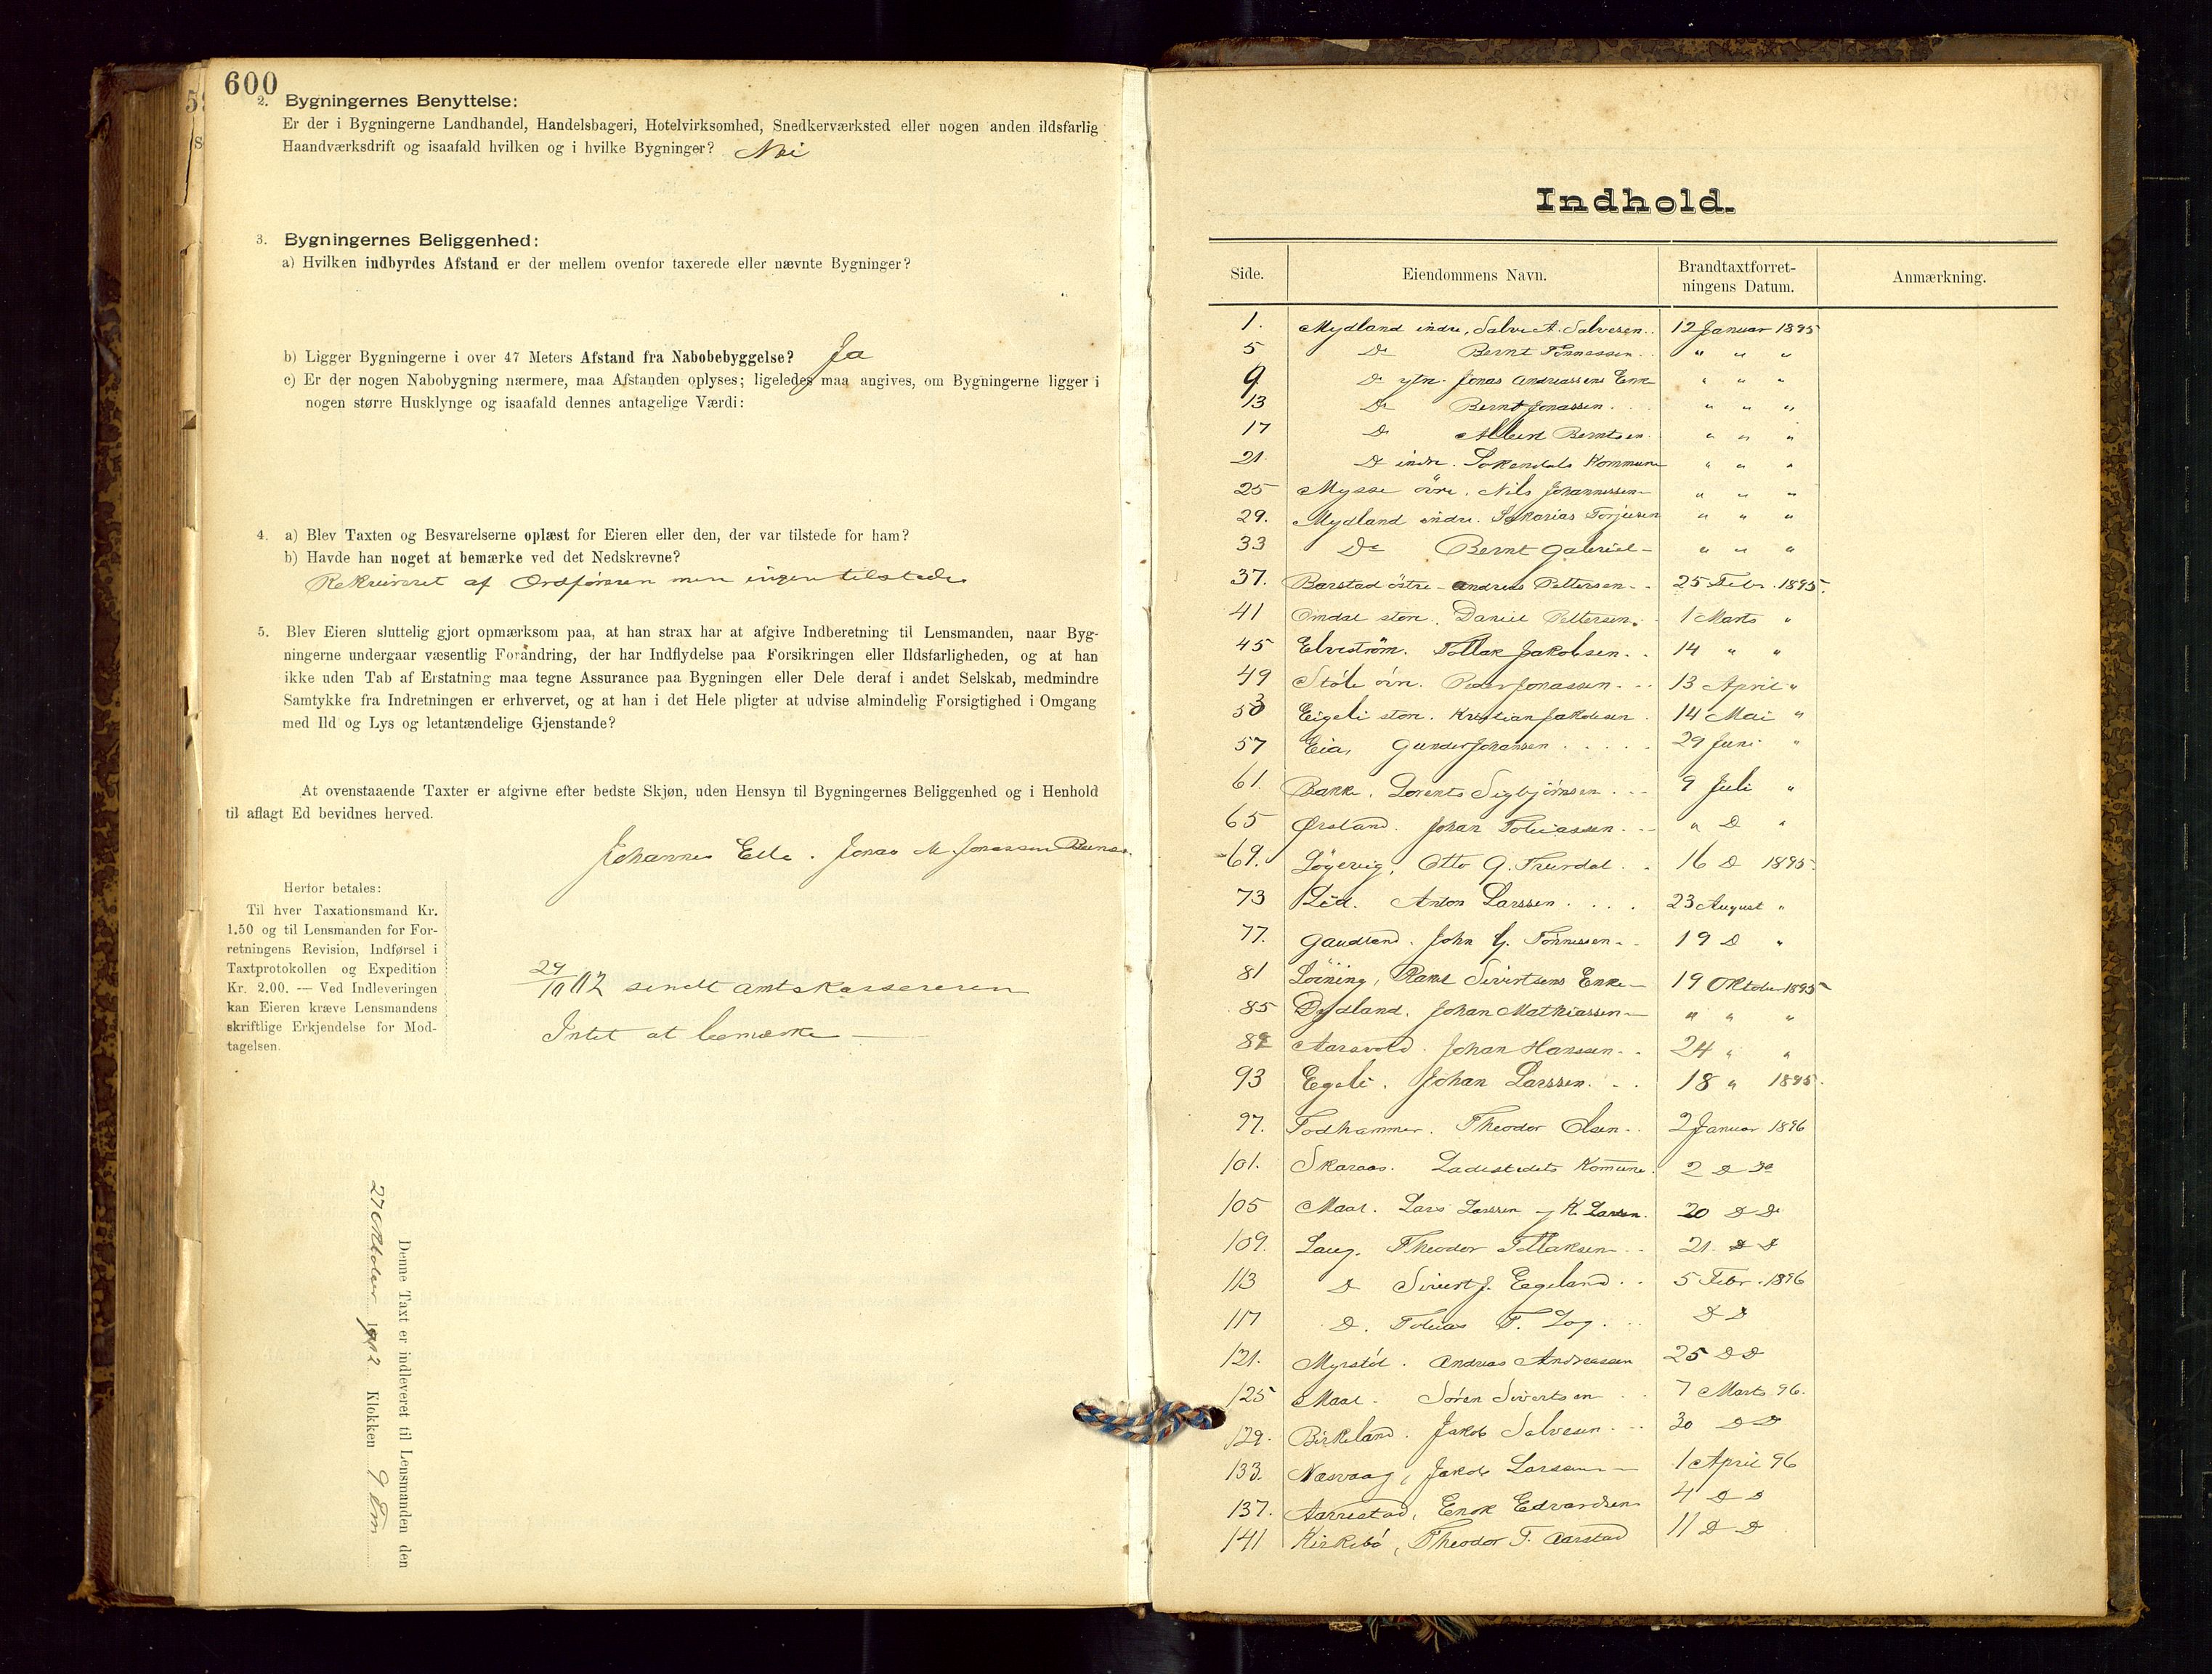 600
2. Bygningernes Benyttelse:
Er der i Bygningerne Landhandel, Handelsbageri, Hotelvirksomhed, Snedkerværksted eller nogen anden ildsfarlig
Haandværksdrift og isaafald hvilken og i hvilke Bygninger? Nei
3. Bygningernes Beliggenhed:
a) Hvilken indbyrdes Afstand er der mellem ovenfor taxerede eller nævnte Bygninger?
b) Ligger Bygningerne i over 47 Meters Afstand fra Nabobebyggelse? Ja
c) Er der nogen Nabobygning nærmere, maa Afstanden oplyses; ligeledes maa angives, om Bygningerne ligger i
nogen større Husklynge og isaafald dennes antagelige Værdi:
4. a) Blev Taxten og Besvarelserne oplæst for Eieren eller den, der var tilstede for ham?
b) Havde han noget at bemærke ved det Nedskrevne?
Rekvireret af Ordføreren men ingen tilstede
5. Blev Eieren sluttelig gjort opmærksom paa, at han strax har at afgive Indberetning til Lensmanden, naar Byg-
ningerne undergaar væsentlig Forandring, der har Indflydelse paa Forsikringen eller Ildsfarligheden, og at han
ikke uden Tab af Erstatning maa tegne Assurance paa Bygningen eller Dele deraf i andet Selskab, medmindre
Samtykke fra Indretningen er erhvervet, og at han i det Hele pligter at udvise almindelig Forsigtighed i Omgang
med Ild og Lys og letantændelige Gjenstande?
At ovenstaaende Taxter er afgivne efter bedste Skjøn, uden Hensyn til Bygningernes Beliggenhed og i Henhold
til aflagt Ed bevidnes herved.
Johannes Eelle. Jonas M. Jonassen
Herfor betales:
Til hver Taxationsmand Kr.
1.50 og til Lensmanden for For-
retningens Revision, Indførsel i
Taxtprotokollen og Expedition
Kr. 2.00. — Ved Indleveringen
kan Eieren kræve Lensmandens
skriftlige Erkjendelse for Mod-
tagelsen.
29/10 02 sendt amtskassereren
Intet at bemærke —
Denne Taxt er indleveret til Lensmanden den
27 Oktober 1902 Klokken 9 Fm
Indhold.
Side. Eiendommens Navn. Brandtaxtforret-
ningens Datum. Anmærkning.
1. Mydland indre, Salve A. Salvesen. 12 Januar 1895
5 Do Bernt Tønnessen. " " "
9 Do ytre. Jonas Andreassens Enke " " "
13 Do Bernt Jonassen. " " "
17 Do Albert Berntsen " " "
21 Do indre. Sokendals Kommune " " "
25 Mysse övre. Nils Johannessen " " "
29. Mydland indre. Sakarias Torjusen " " "
33 Do Bernt Gabriel " " "
37. Barstad östre - Andreas Pettersen 25 Febr. 1895.
41 Omdal store. Daniel Pettersen. 1 Marts "
45 Elvestrøm. Tollak Jakobsen. 14 " "
49 Støle övre. Peder Jonassen. 13 April "
53 Eigeli store. Kristian Jakobsen. 14 Mai "
57 Eia, Gunder Johansen 29 Juni "
61. Bakke, Lorents Sigbjørnsen. 9 Juli "
65 Ørsland. Johan Tobiassen. " D "
69. Løgevig, Otto G. Trerdal. 16 D 1895.
73 Lid. Anton Larssen 23 August "
77. Gaudland. John G. Tønnessen 19 D "
81 Löining, Sivertsens Enke 19 Oktober 1895
85 Dydland. Johan Mathiassen " " "
89 Aarsvold. Johan Hanssen 24 " "
93 Egeli. Johan Larssen. 18 " 1895.
97. Todhammer. Theodor Olsen. 2 Januar 1896
101. Skaraas. Ladestedets Komune. 2 D Do
105 Maal. Lars Larssen og K. Larsen. 20 D Do
109. Laug. Theodor Tollaksen. 21. D D
113 D Sivert J. Eegeland. 5 Febr. 1896
117 D. Tobias T. Log. D D
121. Myrstöl. Andreas Andreassen 25 D D
125 Maal. Søren Sivertsen 7 Marts 96.
129. Birkeland. Jakob Salvesen. 30 D D
133. Næsvaag, Jakob Larssen 1 April 96
137. Aarrestad, Enok Edvardsen 4 D D
141 Kirkebö, Theodor T. Aarstad 11 D D